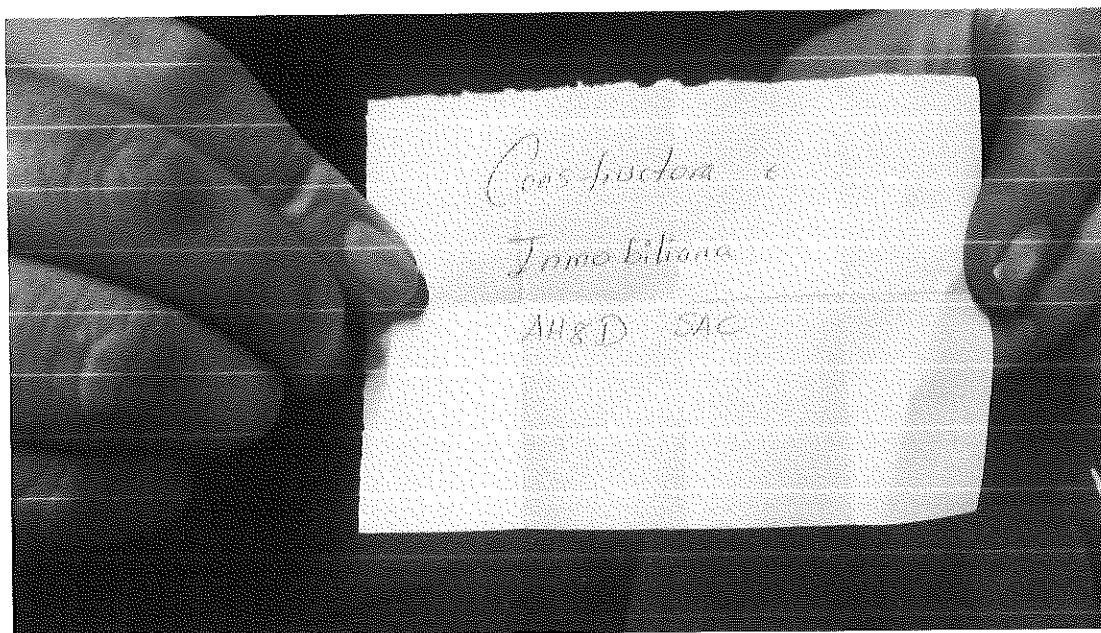 Constructora e
Inmobiliaria
AH&D SAC